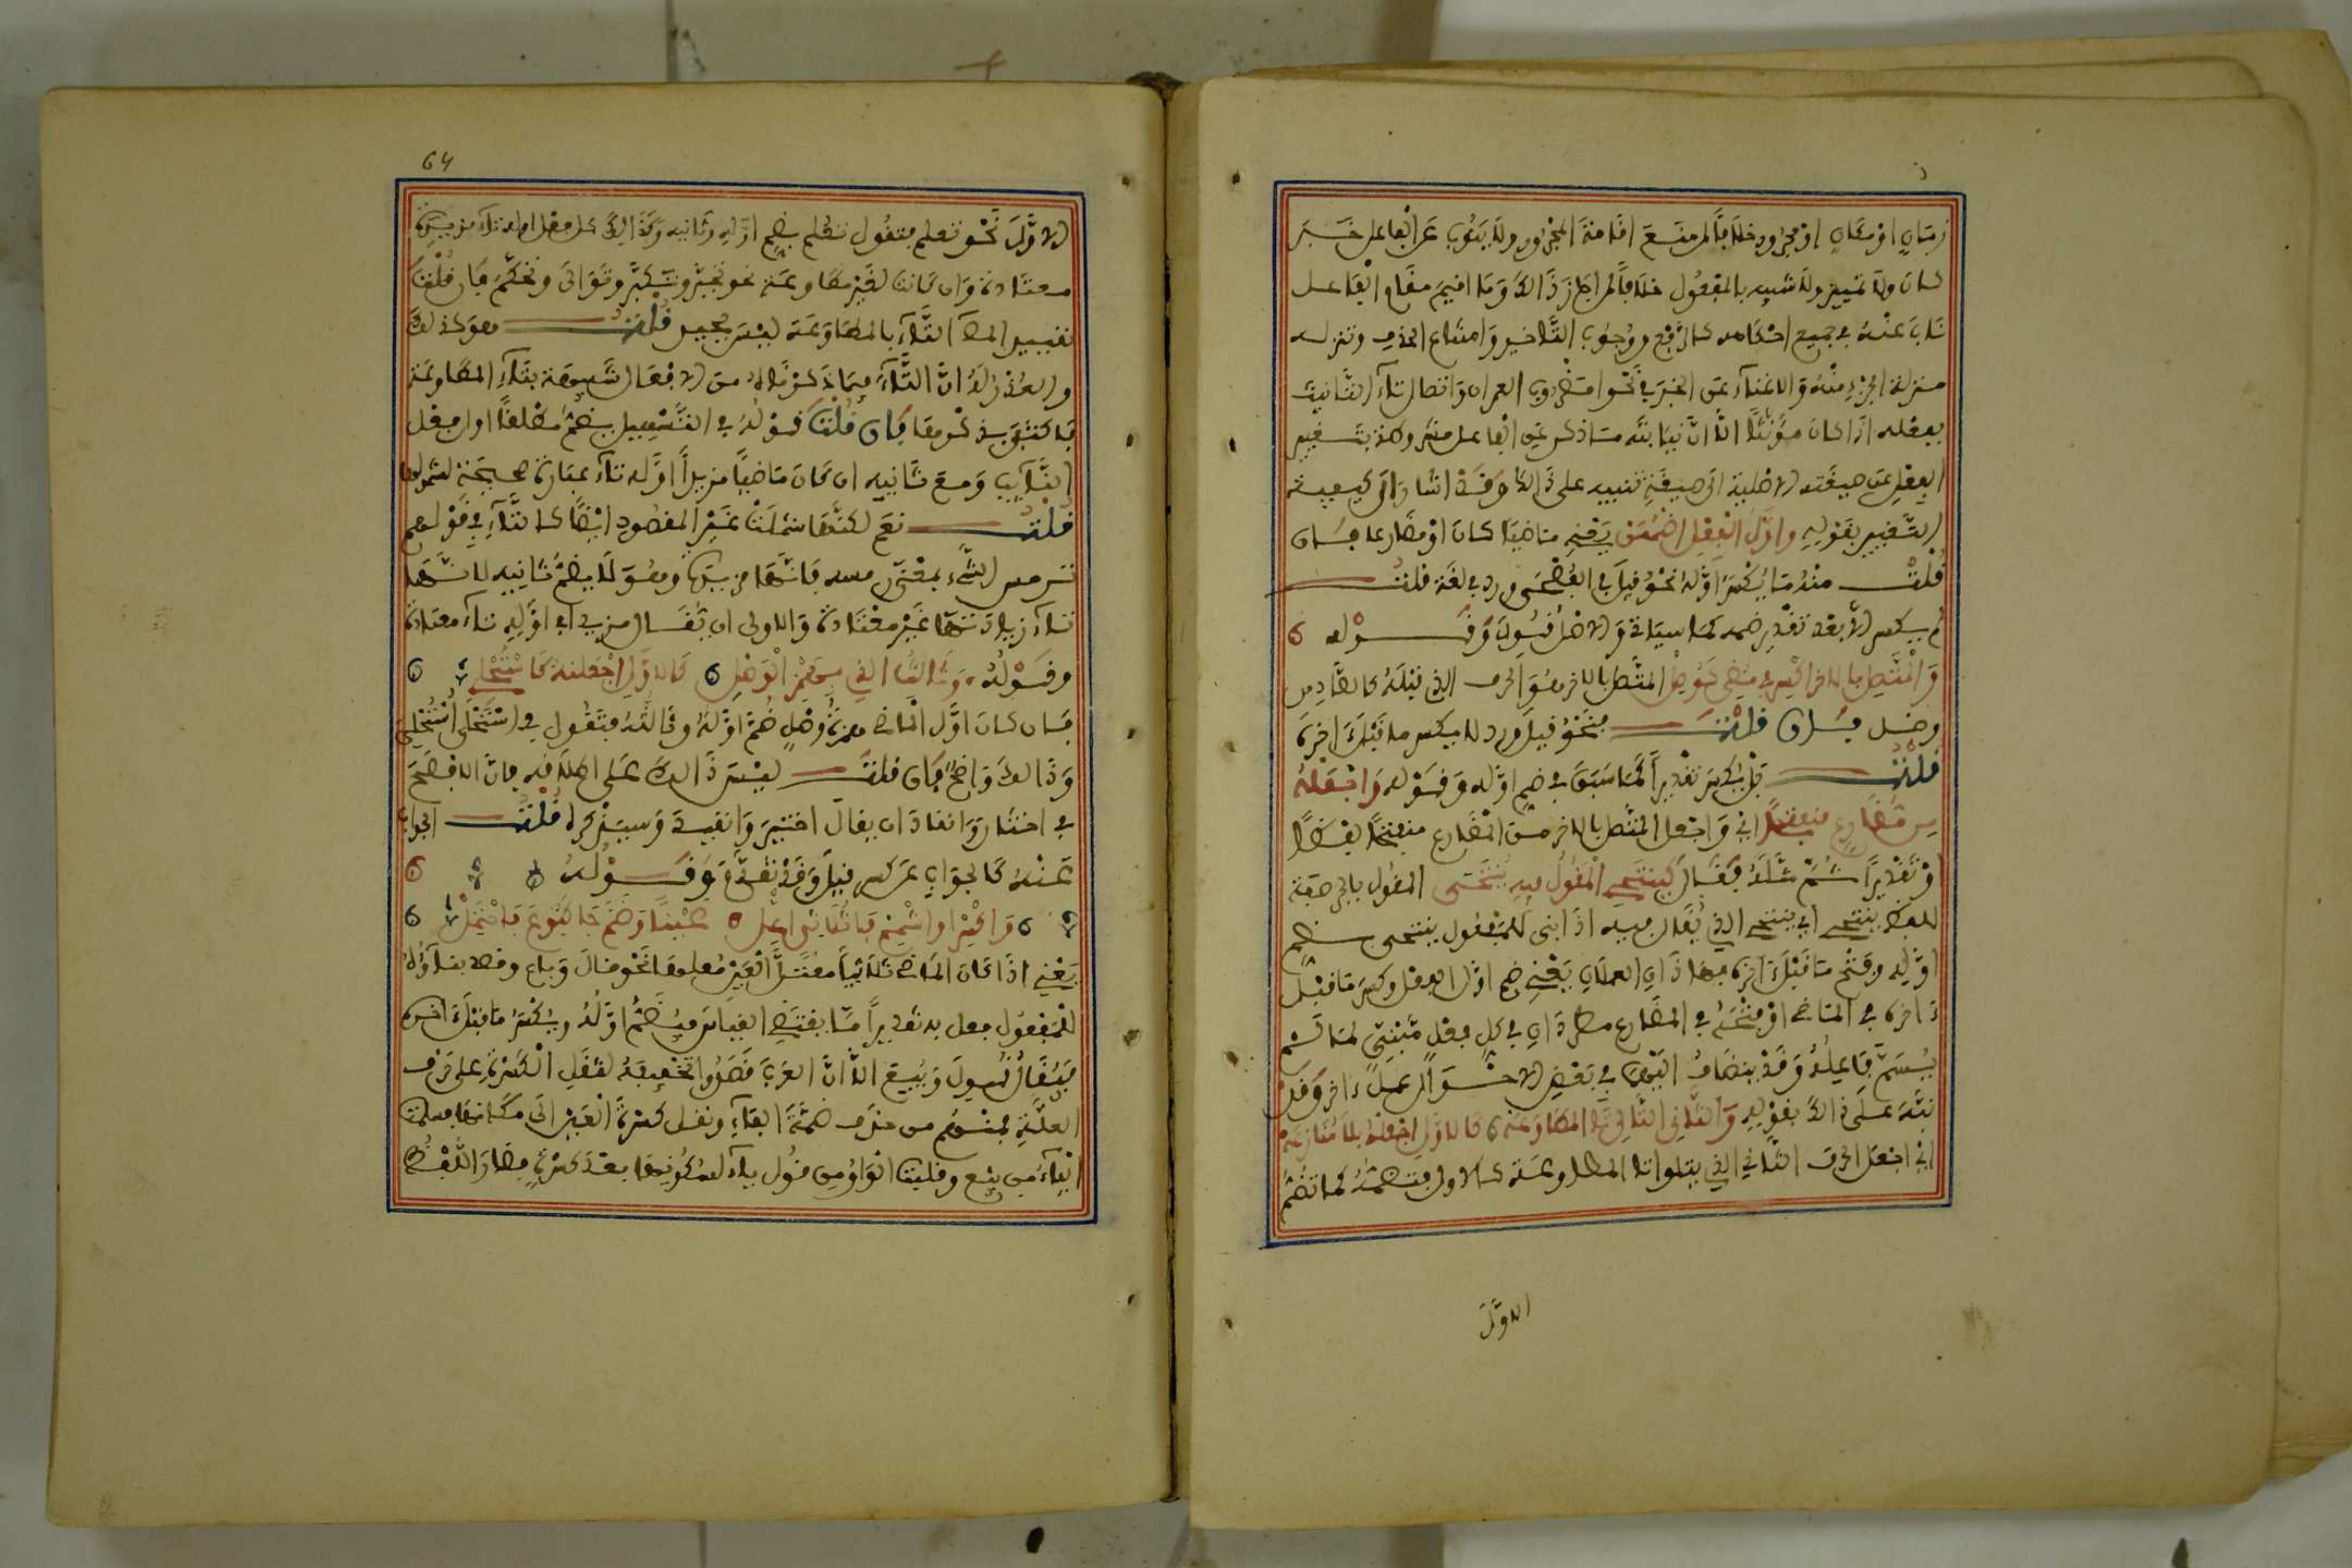 زمان او مكان او مجرور خلافا لمن منع اقامة المجرور ولا ينوب عن الفاعل خبر
كان ولا تمييز ولا شبيه بالمفعول خلافا لمن اجاز ذالك وما اقيم مقام الفاعل
ناب عنه في جميع احكامه كالرفع ووجوب التاخير وامتناع الحذف وتنزله
منزلة الجزء منه والاغناء عن الخبر في نحو امضروب العمران واتصال تاء التانيث
بفعله اذا كان مؤنثا الا ان نيابته عن الفاعل وكذا بتغيير
الفعل عن صيغته الاصلية الى صيغة تنبيه على ذالك وقد اشار الى كيفية
التغيير بقوله واول الفعل اضممن يعني ماضيا كان او مضارعا فان
قلت منه ما يكسر اوله نحو قيل في الفصحى ورد في لغة قلت
لم يكسر الا بعد تقدير ضمه كما سياتي والاصل قول وقوله
والمتصل بالاخر اكسر في مضي كوصل المتصل بالاخر هو الحرف الذي قبله كالصاد من
وصل فان قلت فنحو قيل ورد لا يكسر ما قبل اخره
قلت بل يكسر تقديرا كما سبق في ضم اوله وقوله واجعله
من مضارع منفتحا اي واجعل المتصل بالاخر من المضارع منفتحا لفظا
او تقديرا ثم مثله فقال كينتحي المقول فيه ينتحى المقول بالجر صفة
للفظ ينتحي اي ينتحي الذي يقال فيه اذا بني للمفعول ينتحى بضم
اوله وفتح ما قبل اخره فهاذان العملان يعني ضم اول الفعل وكسر ما قبل
ءاخره في الماضي او فتحه في المضارع مطردان في كل فعل مبني لما لم
يسم فاعله وقد ينضاف اليهما في بعض الاحوال عمل ءاخر وقد
نبه على ذالك بقوله والثاني التالي تا المطاوعه كالاول اجعله بلا منازعه
اي اجعل الحرف الثاني الذي يتلوا تا المطاوعة كالاول فتضمه كما تضم
الاول
64
الاول نحو تعلم فتقول تعلم بضم اوله وثانيه وكذالك كل فعل اوله تاء مزيدة
معتادة وان كانت لغير مطاوعة نحو تجبر وتكبر وتوانى وتحكم فان قلت
تقييد التاء بالمطاوعة ليس بجيد قلت هو كذالك
والعذر له ان التاء فيما ذكرناه من الافعال شبيهة بتاء المطاوعة
فاكتفى بذكرها فان قلت قوله في التسهيل يضم مطلقا اول فعل
النائب ومع ثانيه ان كان ماضيا مزيدا اوله تاء عبارة صحيحة لشمولها
قلت نعم لكنها شملت غير المقصود ايضا كالتاء في قولهم
ترمس الشيء بمعنى رمسه فانها مزيدة وهو لا يضم ثانيه لانها
تاء زيادتها غير معتادة والاولى ان يقال مزيد في اوله تاء معتادة
وقوله وثالث الذي بهمز الوصل كالاول اجعلنه كاستحلي
فان كان اول الماضي همزة وصل ضم اوله وثالثه فتقول في استحلى استحلي
وذالك واضح فان قلت ليس ذالك على اطلاقه فان الافصح
في اختار وانقاد ان يقال اختير وانقيد وسيذكره قلت الجواب
عنه كالجواب عن كسر قيل وقد تقدم وقوله
واكسر او اشمم فا ثلاثي اعل عينا وضم جا كبوع فاحتمل
يعني اذا كان الماضي ثلاثيا معتل العين نحو قال وباع وقصد بناؤه
للمفعول فعل به تقديرا ما يقتضي القياس فيضم اوله ويكسر ما قبل اخره
فيقال قول وبيع الا ان العرب قصدوا تخفيفه لثقل الكسرة على حرف
العلة فمنهم من حذف ضمة الفاء ونقل كسرة العين الى مكانها فسلمت
الياء من بيع وقلبت الواو من قول ياء لسكونها بعد كسرة فصار اللفظ